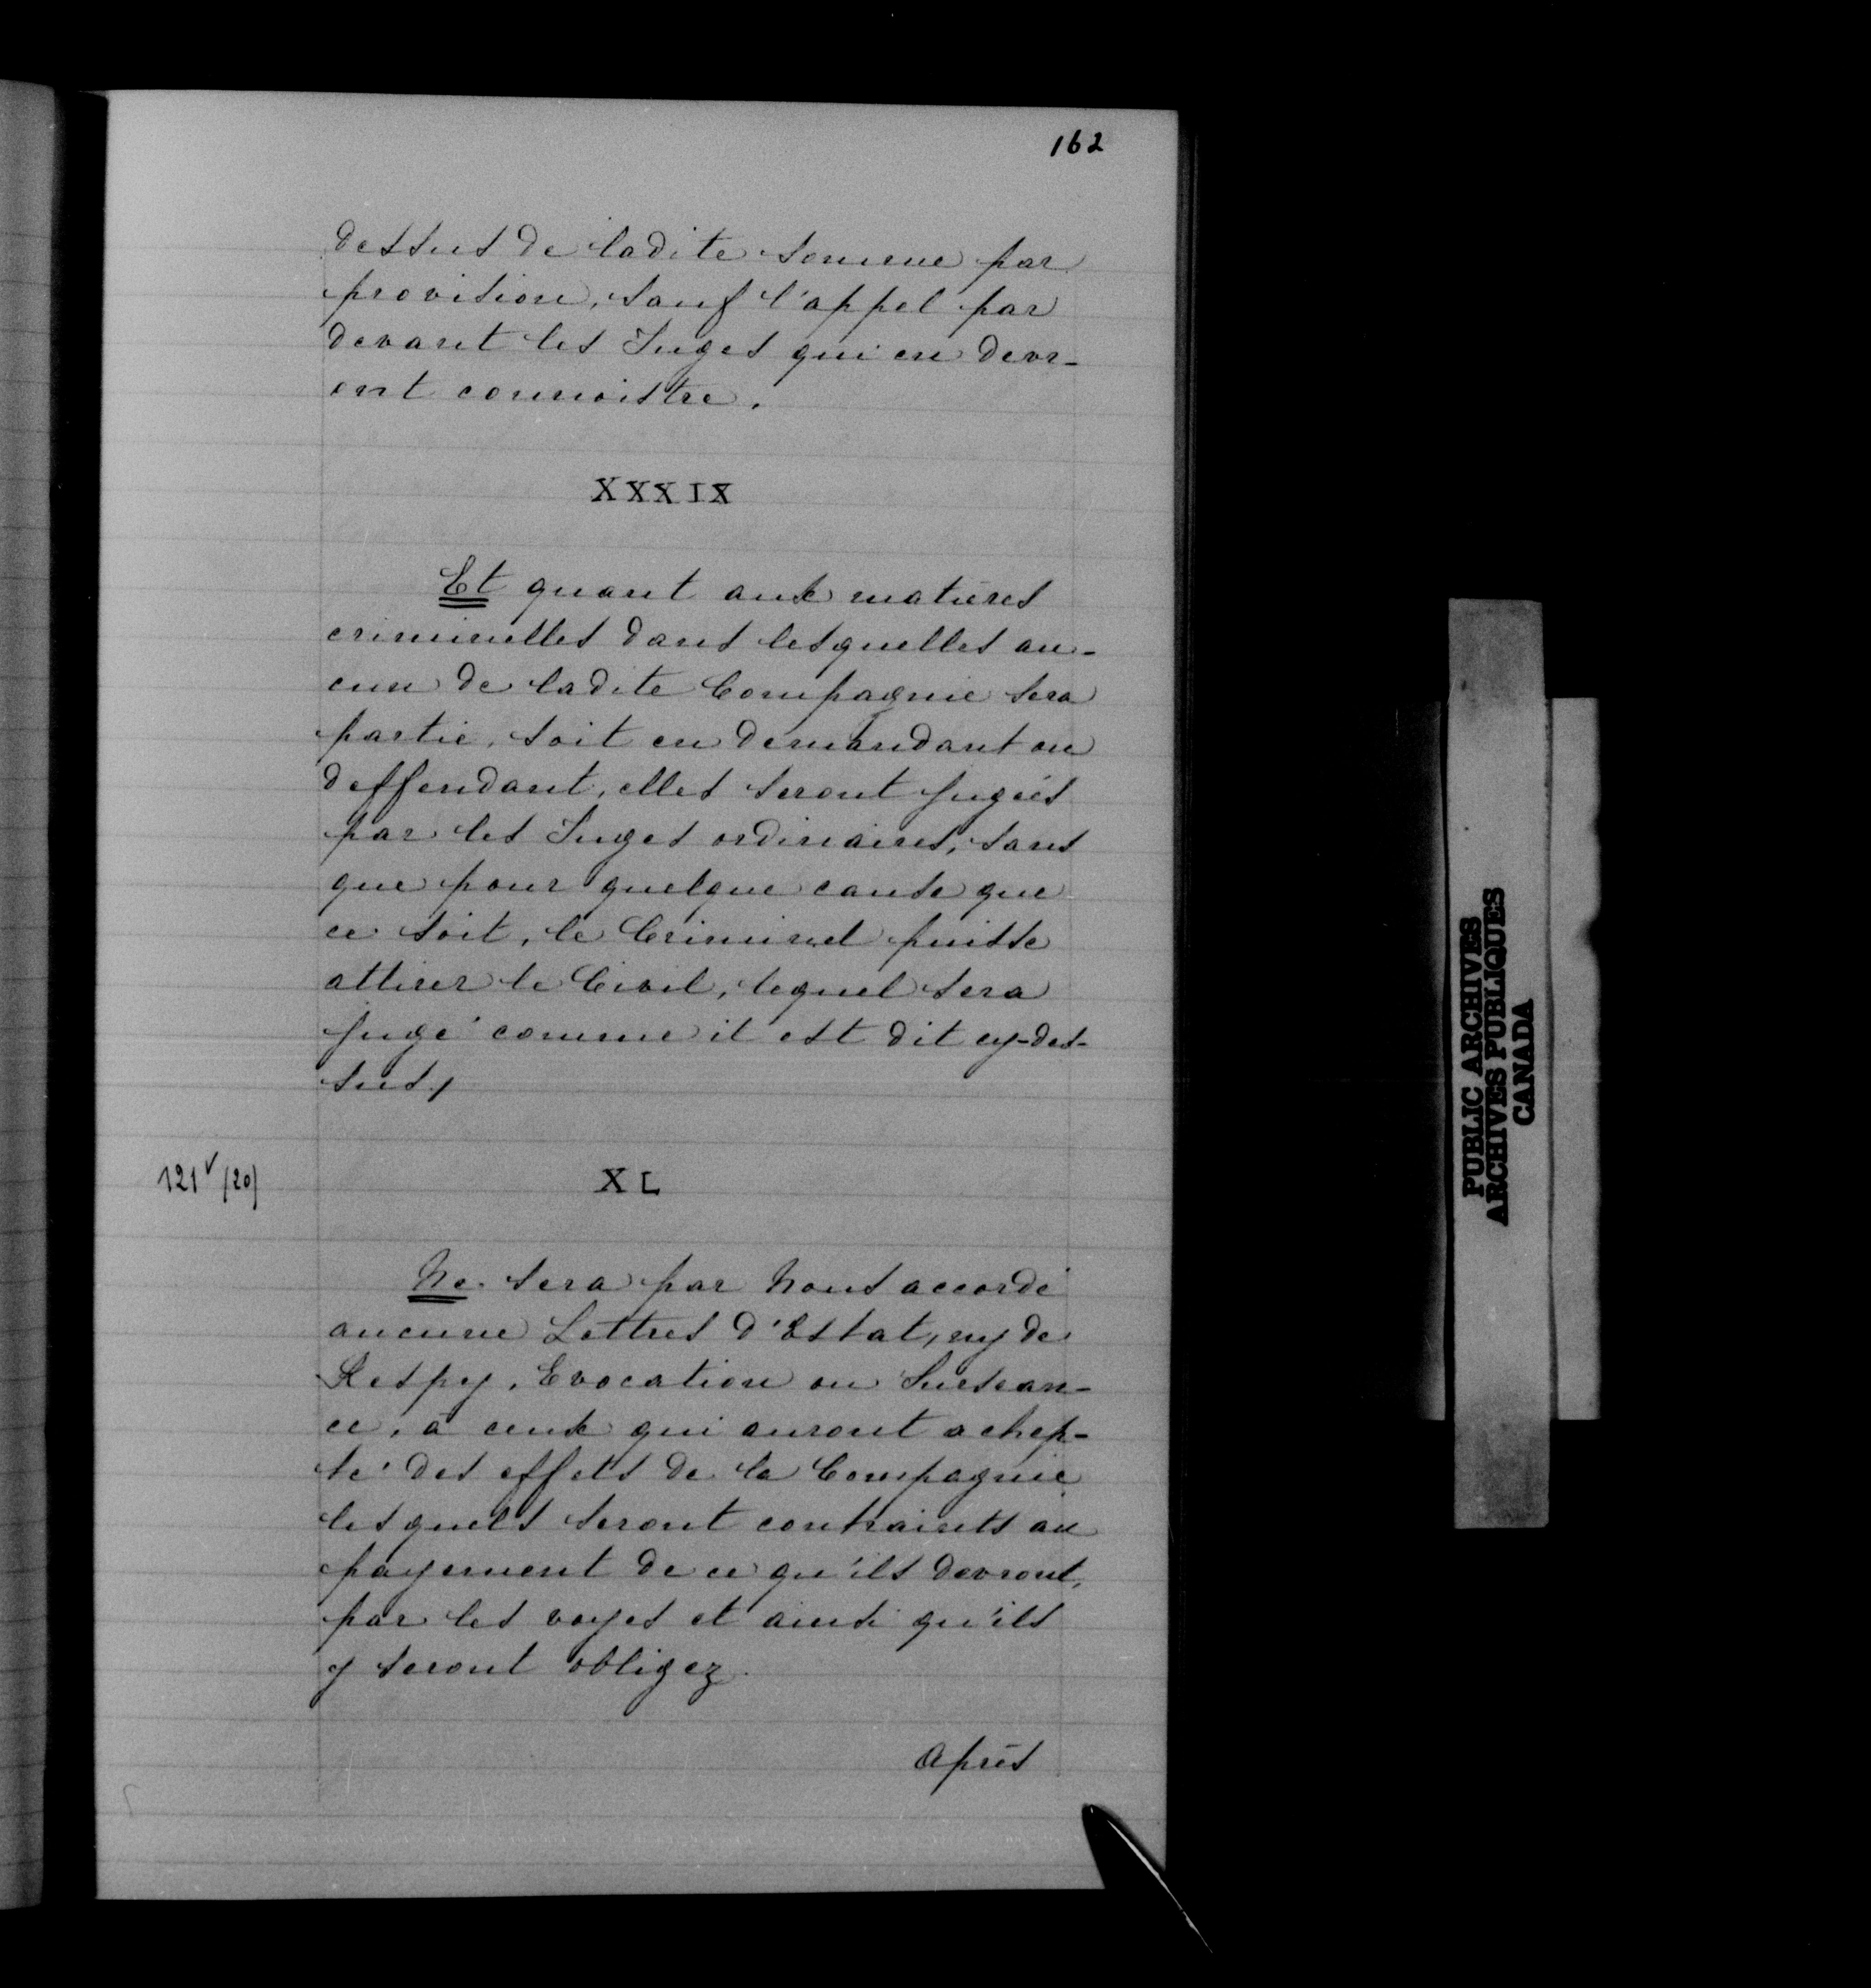 162
dessus de ladite somme par
provision, sauf l'appel par
devant les Juges qui en devr-
ont connoistre.
XXXIX
Et quant aux matières
criminelles dans lesquelles au-
cun de ladite Compagnie sera
partie, soit en demandant ou
deffendant, elles seront jugées
par les Juges ordinaires, sans
que pour quelque cause que
ce soit, le Criminel puisse
attirer le Civil, lequel sera
jugé comme il est dit cy-des-
sus,
121v (20)
XL
Ne sera par Nous accordé
aucune Lettres d'Estat, ny de
Respy, Evocation ou Surséan-
ce, à ceux qui auront achep-
té des effets de la Compagnie
lesquels seront contraints au
payement de ce qu'ils devront,
par les voyes et ainsi qu'ils
y seront obligez.
Après
PUBLIC ARCHIVES
ARCHIVES PUBLIQUES
CANADA